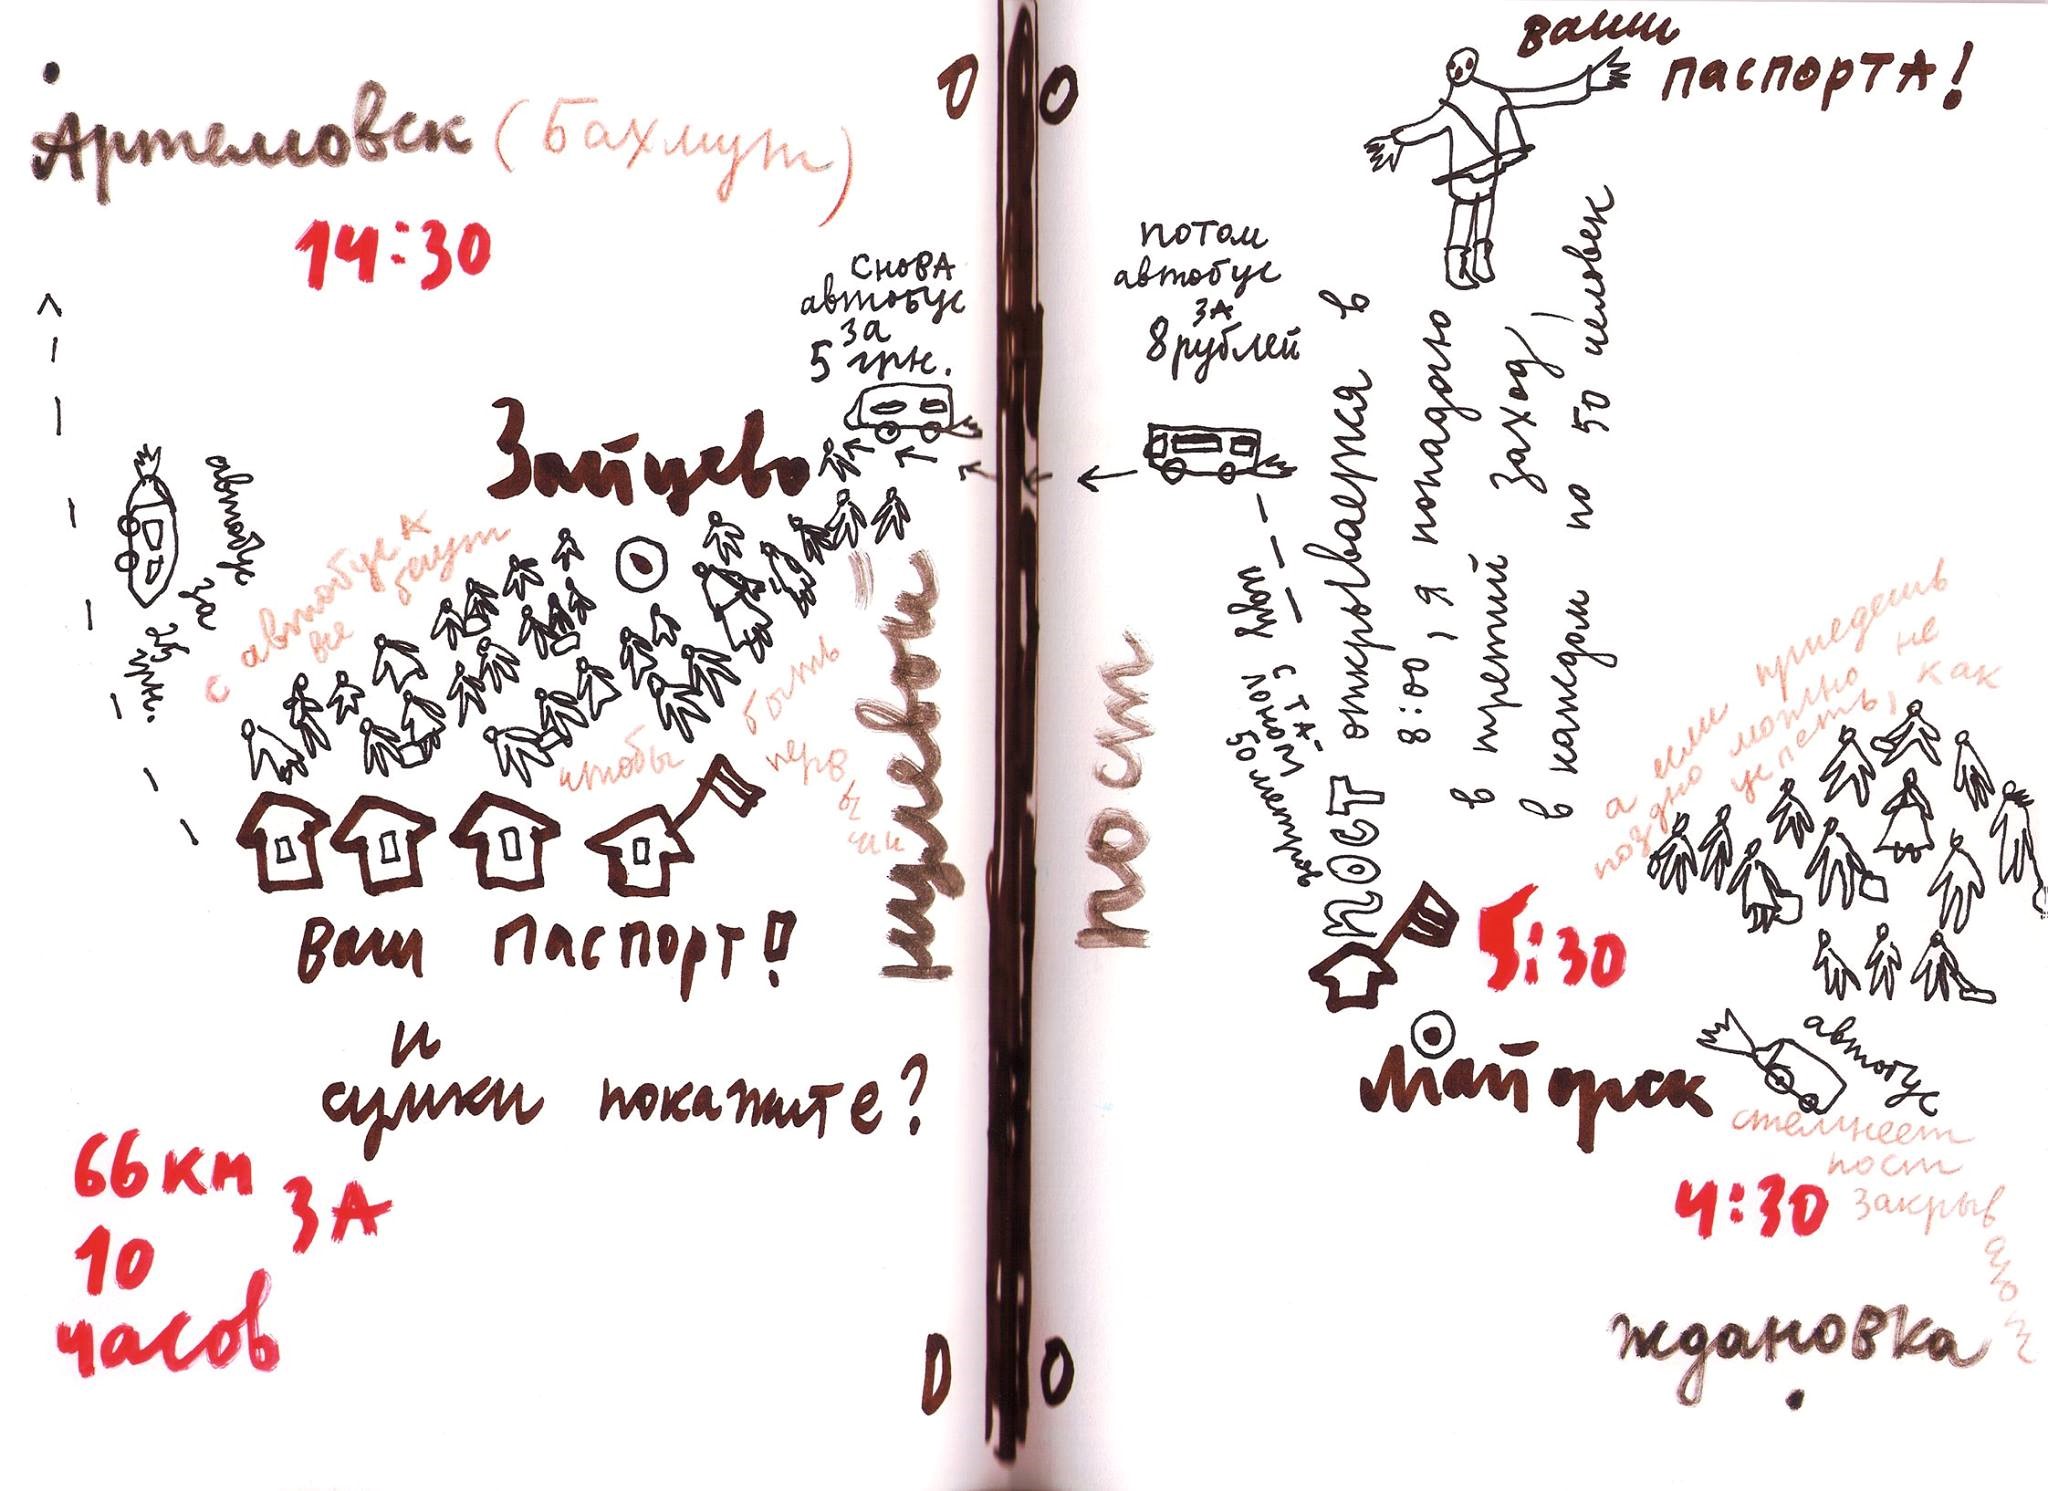 Артемовск (Бахмут)
14:30
снова
автобус
за
5 грн.
Зайцево
автобус
за
с автобуса
все бегут
чтобы
быть
первы
ми
Ваш паспорт!
и
сумки покажите?
66 км
за
10
часов
0 0
нулевой
пост
0 0
ваши
паспорта!
потом
автобус
за
8 рублей
пост открывается в
8:00, я попадаю
в третий заход,
в каждом по 50 человек
50 метров
иду
а если приедешь
поздно можно не
успеть, как
5:30
Майорск
автобус
стемнеет
пост
закрыв
ают
4:30
Ждановка